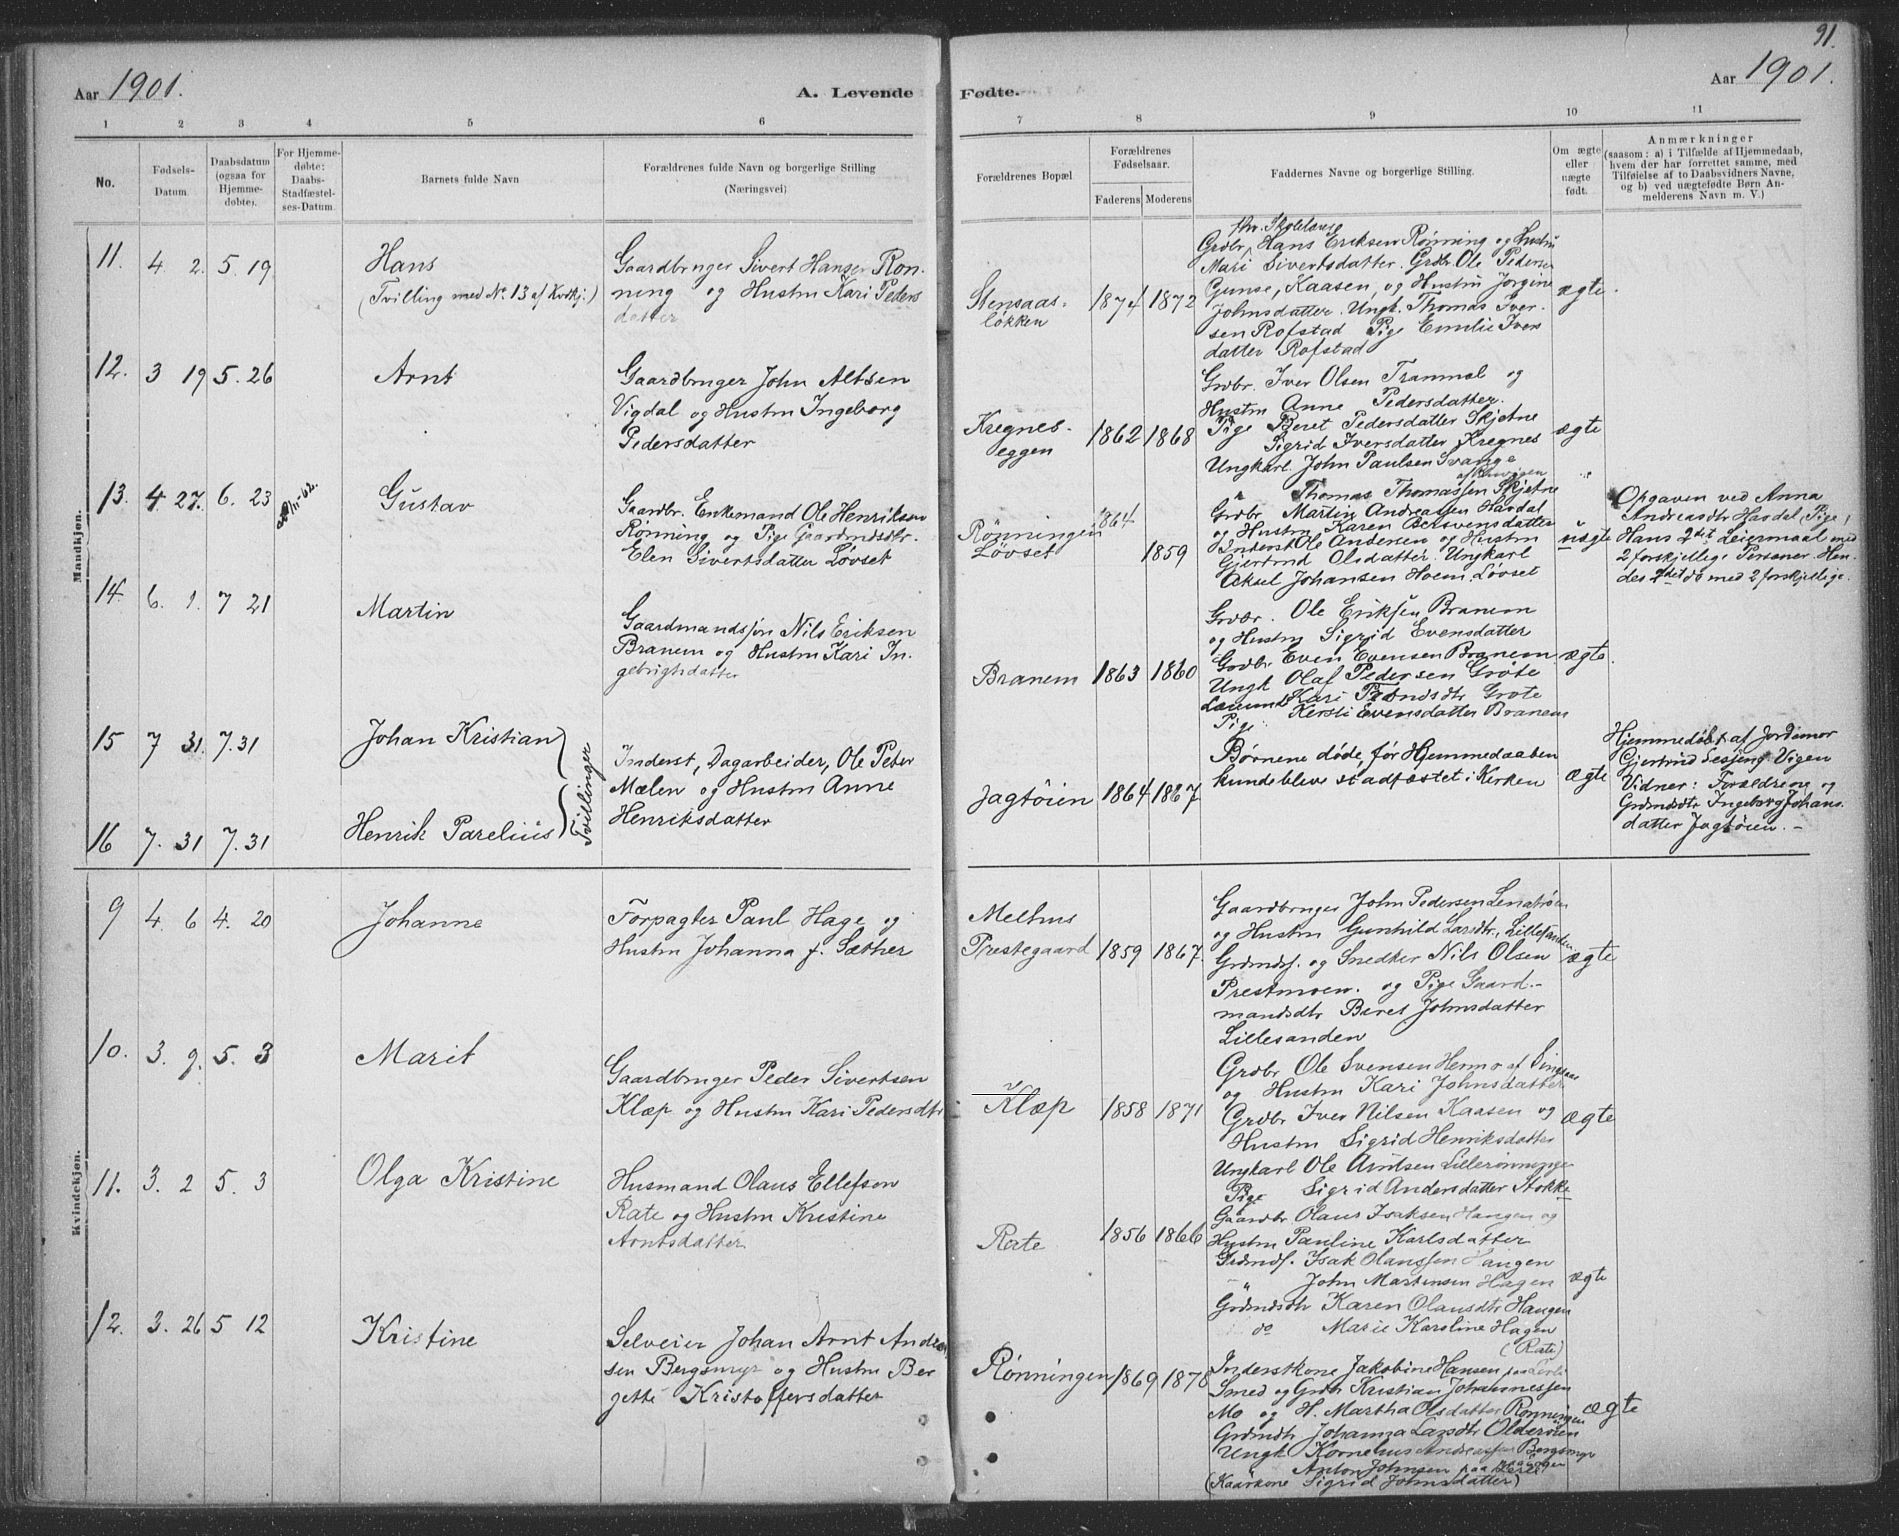 91.
Aar 1901.
A. Levende
Fødte.
Aar 1901.
1 2 3 4 5 6 7 8 9 10 11
No.
Fødsels-
Datum
Daabsdatum
(ogsaa for
Hjemme-
døbte).
For Hjemme-
døbte:
Daabs-
Stadfæstel-
ses-Datum.
Barnets fulde Navn
Forældrenes fulde Navn og borgerlige Stilling
(Næringsvei)
Forældrenes Bopæl
Forældrenes
Fødselsaar.
Faderens Moderens
Faddernes Navne og borgerlige Stilling.
Om ægte
eller
uægte
født.
Anmærkninger
(saasom: a) i Tilfælde af Hjemmedaab,
hvem der har forrettet samme, med
Tilføielse af to Daabsvidners Navne,
og b) ved uægtefødte Børn An-
melderens Navn m. V.)
Mandkjøn.
11. 4 2. 5. 19
Hans
(Tvilling med No. 13 af Kvdkj.)
Gaardbruger Sivert Hansen Røn-
ning og Hustru Kari Peders
datter
Stensaas-
løkken
1874 1872
fhv. Skolelærer
Grdbr. Hans Eriksen Rønning og Hustru
Mari Sivertsdatter. Grdbr. Ole Pedersen
Gunse, Kaasen, og Hustru Jørgine
Johnsdatter. Ungk. Thomas Iver-
sen Rofstad Pige Emilie Ivers
datter Rofstad
ægte.
12. 3 19 5. 26
Arnt
Gaardbruger John Altsen
Vigdal og Hustru Ingeborg
Pedersdatter
Kregnes-
eggen
1862 1868
Grdbr. Iver Olsen Tranmæl og
Hustru Anne Pedersdatter.
Pige Beret Pedersdatter Skjetne
Sigrid Iversdatter Kregnes
Ungkarl. John Paulsen Svange
" Thomas Thomassen Skjetne
ægte
13. 4 27. 6. 23
Gustav
Gaardbr. Enkemand Ole Henriksen
Rønning og Pige Gaardmdsdtr.
Elen Sivertsdatter Løvset
Rønningen
Løvset
1864
1859
Grdbr Martin Andreassen Havdal
og Hustru Karen Bersvensdatter
Inderst Ole Andersen og Hustru
Gjertrud Olsdatter. Ungkarl
Aksel Johansen Hoem, Løvset
uægte
Opgaven ved Anna
Andreasdtr Havdal (Pige)
Hans 2det Leiermaal med
2 forskjellige Personer. Hen-
des 2det do med 2 forskjellige.
14. 6. 1. 7 21
Martin
Gaardmandssøn Nils Eriksen
Branem og Hustru Kari In-
gebrigtsdatter
Branem
1863 1860
Grdbr. Ole Eriksen Branem
og Hustru Sigrid Evensdatter
Grdbr Even Evensen Branem
Ungk Olaf Pedersen Grøte
Kari Grøte
Pige Kersti Evensdatter Branem
ægte.
15 7 31. 7. 31
Johan Kristian
16 7. 31 7. 31
Henrik Parelius
Tvillinger
Inderst, Dagarbeider, Ole Peter
Mælen og Hustru Anne
Henriksdatter
Jagtøien
1864 1867
Børnene døde, før Hjemmedaaben
kunde bleve stadfæstet i Kirken
ægte
Hjemmedøbt af Jordemor
Gjertrud Lesjeng Vigen
Vidner: Forældrene og
Grdmdsdtr Ingeborg Johans-
datter Jagtøien. -
Kvindekjøn.
9 4 6 4. 20
Johanne
Forpagter Paul Hage og
Hustru Johanna f. Sæther
Melhus
Prestegaard
1859 1867.
Gaardbruger John Pedersen Lenatrøen
og Hustru Gunhild Larsdtr., Lillesanden
Grdmdss. og Snedker Nils Olsen
Prestmoen. og Pige Gaard-
mandsdtr Beret Johnsdatter
Lillesanden
ægte
10. 3. 9. 5. 3
Marit
Gaardbruger Peder Sivertsen
Klæp og Hustru Kari Pedersdtr
Klæp
1858 1871
Grdbr Ole Svensen Hermo af Singsaas
og Hustru Kari Johnsdatter
Grdbr Iver Nilsen Kaasen og
Hustru Sigrid Henriksdatter
Ungkarl Ole Arntsen Lillerønningen
Pige Sigrid Andersdatter Stokke
ægte
11. 3. 2 5. 3
Olga Kristine
Husmand Olaus Ellefsen
Rate og Hustru Kristine
Arntsdatter
Rate
1856 1866
Gaardbr. Olaus Isaksen Haugen og
Hustru Pauline Karlsdatter
Grdmds. Isak Olaussen Haugen
" John Martinsen Hagen
Grdmdsdtr Karen Olausdtr Haugen
do Marie Karoline Hagen
(Rate)
ægte
12. 3. 26 5 12
Kristine
Selveier Johan Arnt Andrea-
sen Bergsmyr og Hustru Ber
gitte Kristoffersdatter
Rønningen
1869 1878
Inderstkone Jakobine Hansen paa Leeli
Smed og Grdbr Kristian Johannessen
Mo og H. Martha Olsdatter Rønningen
Grdmdtr Johanna Larsdtr Olderøien
Ungk Kornelius Andreassen Bergsmyr
Anton Johnsen paa
(Kaarkone Sigrid Johnsdatter)
ægte